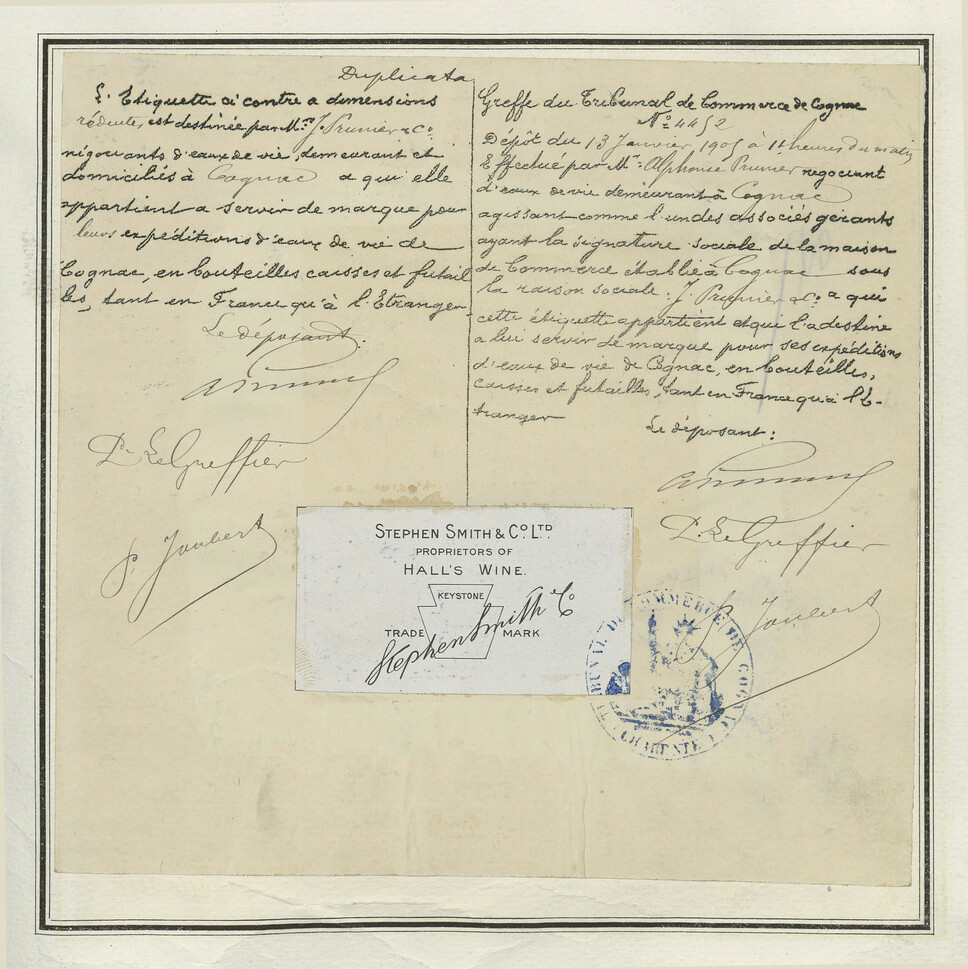 Duplicata
L'Etiquette ci contre a dimensions
réduites, est destinée par Mrs J. Prunier & Co
négociants d'eaux de vie, demeurant et
domiciliés à Cognac a qui elle
appartient a servir de marque pour
leurs expéditions d'eaux de vie de
Cognac, en bouteilles caisses et futail
les, tant en France qu'à l'Etranger
Le déposant:
Pr Le Greffier
P. Joubert
Greffe du Tribunal de Commerce de Cognac
No 4452
Dépôt du 13 Janvier 1905 à 11 heures du matin
Effectué par Mr Alphonse Prunier negociant
d'eaux de vie demeurant à Cognac
agissant comme l'un des associés gérants
ayant la signature sociale de la maison
de Commerce établie à Cognac sous
la raison sociale: J. Prunier & Co a qui
cette étiquette appartient et qui l'a destine
a lui servir de marque pour ses expéditions
d'eaux de vie de Cognac, en bouteilles,
caisses et futailles, tant en France qu'à l'E-
tranger
Le déposant:
Pr Le Greffier
P. Joubert
STEPHEN SMITH & CO. LTD.
PROPRIETORS OF
HALL'S WINE.
KEYSTONE
TRADE MARK
Stephen Smith & Co
TRIBUNAL DE COMMERCE DE COGNAC
(CHARENTE)